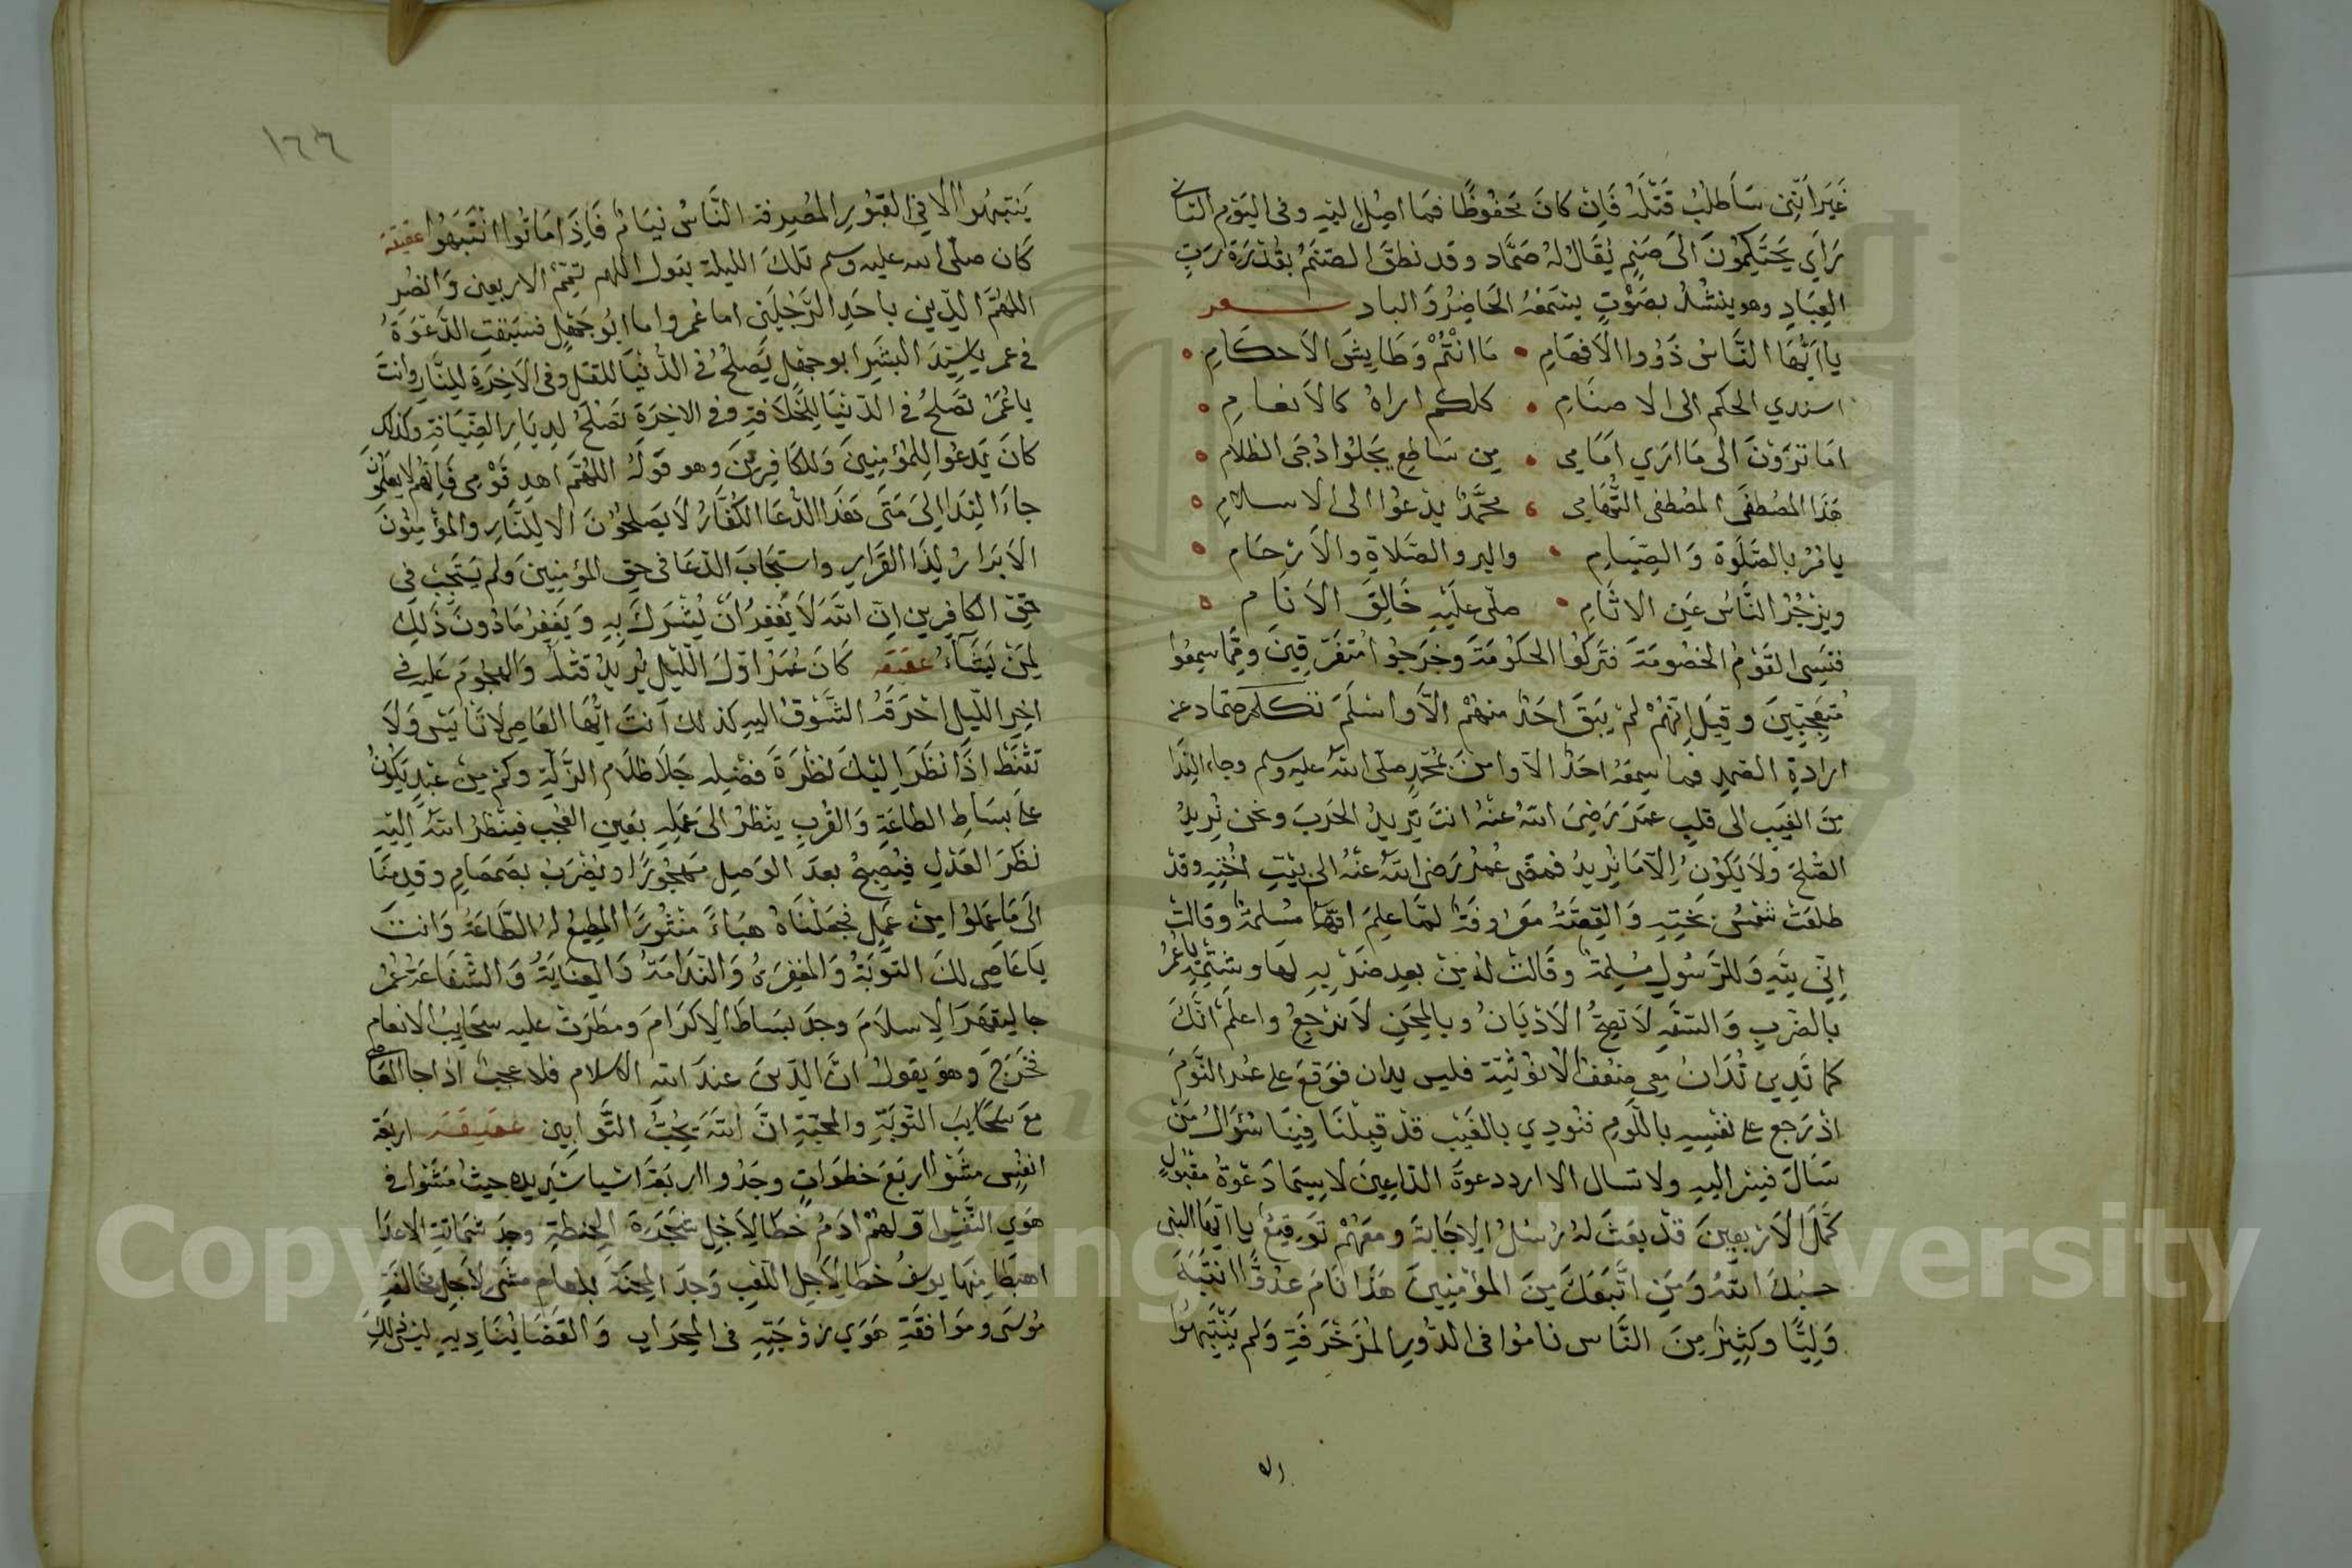 غَيْرَ اَنّنِى سَاَطلُبُ قَتْلَهُ فَاِنْ كانَ مَحفُوظًا فما اصِلُ اليْهِ وفى اليَوْم الثانى
رَاَي يَحتَكِمُونَ الَى صَنمٍ يُقَالُ لهُ ضَمَّاد وقد نطقَ الصَنَمُ بقُدْرَةِ رَبّ
العِبَادِ وهو ينشُدُ بصَوْتٍ يسْمَعُهُ الحَاضِرُ وَالباد شعر
يا اَيُّهَا النَّاسُ ذَوُوا الاَفهَامِ • مَا انْتُمُ وَطَايِشَ الاَحكَامِ •
اسندي الحكم الى الاصنَامِ • كلكم اراهُ كالاَنعامِ •
اَمَا تَرَوْنَ الى مَا ارَي اَمَامِى • مِن سَاطِعٍ يَجلُوا دُجَى الظلاَم •
هَذَا المُصْطفَى المُصْطفى التُّهَامِى • محَمَّدٌ يَدْعُوا الى الاسلامِ •
يامُرُ بالصَّلَوة وَالصِّيَامِ • والبر والصَّلاةِ والاَرْحَامِ •
ويَزْجُرُ النَّاسُ عَنِ الاثَامِ • صلّى علَيْهِ خَالِقَ الاَنَامِ •
فنَسِى القَوْمُ الخصُومَةَ فتَرَكُوا الحكُومَةَ وخرَجُوا مُتفَرِّقِينَ وممَّا سِمعُوا
مُتعَجِّبِينَ وقِيلَ اِنّهُمْ لمْ يَبقَ احَدٌ منهُمْ الاَّ واسْلَمَ تكلم ضمَاد عَن
ارادةِ الصَمدِ فما سِمعَهُ احَدٌ الاّ وامنَ بمُحَمّدٍ صلّى اللهُ عليه وسلم وجاء النِّدَا
مِنَ الغَيب الى قلبِ عمَرَ رَضِىَ اللهُ عَنْهُ انتَ تَرِيدُ الحَربَ ونحن نُرِيدُ
الصُّلحَ ولاَ يَكُونُ الاَّ مَا نُرِيدُ فمضَى عُمَرُ رَضى اللهُ عَنْهُ الى بَيْتِ اخْتِهِ وقدْ
طلعَتْ شمْسُ بَختِهِ وَالقِصَّةُ مَعْرُوفَةٌ لمّا عِلِمَ انهّا مُسْلمَةٌ وقالتْ
اِنِّى لِلّهِ وَللرَّسُولِ مُسْلِمَةٌ وقَالتْ لهُ مِنْ بعدِ ضرْبِهِ لهَا وشَتْمِهِ يا عُمَرُ
بالضَّرْبِ وَالسَّفَهِ لاَ تصِحُّ الاَدْيَانُ وبالمِحَنِ لاَ نرْجِعُ واعلَمْ انَّكَ
كما تَدِين تُدَانُ مِعى ضعفُ الاُنوثيّة فليس يدان فوَقعَ على عُمَر النَّوْمَ
اذ رَجع على نفسِهِ باللَّومِ فنُودِي بالغَيْبِ قدْ قبلْنَا فِينَا سُؤالُ مَنْ
سَالَ فينا اليهِ ولا تسال الا اردد دعوةَ الدّاعِينَ لاسيّما دَعْوةُ مقبُولٍ
كمَّلَ الاَرْبعِينَ قدْ بعَثَ لهُ رُسُلُ الاِجَابَةَ ومعَهُمْ تَوْقِيعُ يا ايّهَا النبى
حسْبُكَ اللهُ وَمَنِ اتَّبعَكَ مِنَ المؤمِنِينَ هَذا نَامَ عَدُوًّا انتَبَهَ
وَلِيًّا وكثِيرٌ مِنَ النَّاس نامُوا فى الدُّورِ المُزَخْرَفَةِ وَلم يَنْتَبِهُوا
الا
١٦٦
يَنتبِهُوا الاَّ فِى القبُورِ المُصِرفة النَّاسُ نيَامُ فَاِذَ امَاتُوا انْتَبَهُوا عقيقة
كَان صلّى الله عليه وسلم تلكَ الليلة يقول اللهم تمِّمْ الاربعين وَانصُرِ
اللهُمَّ الدِّين باحَدِ الرَّجُلَيْنِ اما عُمر واما ابُو جَهْلٍ فسَبَقتِ الدَّعْوَةُ
فى عمر يا سَيّدَ البشَر ابو جَهل يَصلحُ فى الدُّنْيَا للقتل وفى الاَخِرَةِ للِنَّارِ وانتَ
يا عُمَرَ تصْلحُ فى الدّنْيَا للِخلاَفةِ وفى الاخِرَةِ تصْلحُ لدِيَارِ الضِّيَافةِ وكذلك
كانَ يَدعُوا لِلمُؤمِنِينَ وَللكَافِرِينَ وهو قوْلهُ اللهُمَّ اهدِ قَوْمِى فَاِنّهُم لا يعلَمُونَ
جاءَ النِدَا اِلىَ مَتَى هَذَا الدُّعَا الكُفَّارُ لاَ يَصلحُونَ الاّ لِلنَّارِ والمؤمِنُونَ
الاَبرَارُ لِذَا القَرَارِ واستَجَابَ الدّعَا فى حق المؤمِنِينَ وَلم يَسْتَجِبْ فى
حَقّ الكافِرِين اِنّ اللهَ لاَ يَغْفِرُ اَنْ يُشْرَكَ بِهِ وَيَغفِرُ مَا دُونَ ذَلِكَ
لمَنْ يَشَآءُ عقيقة كَانَ عُمَرُ اوّلَ الّليْل يُرِيدُ قتْلَهُ وَالهجُومَ عليه فى
اخِرِ اللّيلِ احْرَقَهُ الشَّوْقُ اليهِ كذلك اَنتَ ايُّها العَاصِى لا تَايَئس وَلاَ
تَقْنَطْ اذَا نظَرَ اِليْكَ نظرَةَ فضْلِهِ جَلاَ ظلاَم الزَّلّةِ وكمْ مِنْ عَبْدٍ يَكُونُ
على بسَاطِ الطاعَةِ وَالقُرْبِ ينظُرُ الى عَملِهِ بعَينِ العُجْب فيَنظرُ اللهُ اليْهِ
نظَرَ العَدْلِ فيُصِبحُ بعدَ الوَصِلِ مَهجُورًا ويُضْرَبُ بصَمصَامِ وقدِمْنَا
الَى مَا عَمِلُوا مِنْ عَمَلٍ فجَعَلْنَاهُ هبَاءً منْثُورًا المُطِيعُ لهُ الطَّاعَةُ وَانتَ
يَا عَاصِى لكَ التّوْبَةُ وَالمَغْفِرَةُ وَالنّدَامَةُ وَالعِنَايَةُ وَالشّفاعَةُ عُمَرُ
جا ليَقهَرَ الاِسلاَمَ وجدَ بسَاطَ الاِكرَامَ ومطَرَتْ عليه سحَايِبُ الاَنعَامِ
فخَرَجَ وهوَ يقولُ انَّ الدّينَ عندَ اللهِ الاسلام فلا عجبْ اذا جا العَاصِى
معَ سحَايبَ التّوبَةِ والمحَبّةِ انَّ اللهَ يحِبُّ التَّوَابين عقيقة اربَعَة
انفُسٍ مشَوْا اربَعَ خطوَاتٍ وجَدُوا اربَعَةَ اشيا شديده حيثُ مَشَوْا فى
هَوَي النَّفْسِ اوّلهُمْ ادَمُ خطَا لِاَجْلِ شجَرَةَ الحِنطةِ وجدَ شَمَاتَةِ الاعدَا
اهبطَا مِنهَا يوسُفُ خطَا لِاَجلِ اللّعِبِ وَجدَ المِحْنَةَ بلعام مشَى لاَجلِ مخَالفَةِ
مُوسَى وموَافقَةِ هَوَي زوْجَتِهِ فى المِحرَابِ وَالقَضَا يُنَادِيهِ